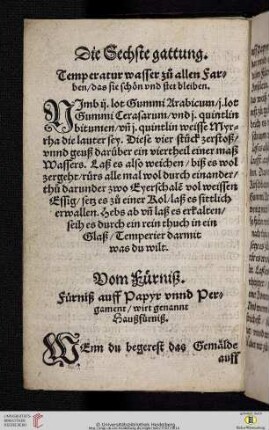 Die Sechste gattung.
Temperatur wasser zů allen Far-
ben/das sie schön vnd stet bleiben.
NJmb ij. lot Gummi Arabicum/j.lot
Gummi Cerasarum/vnd j. quintlin
bitumen/vñ j. quintlin weisse Myr-
rha die lauter sey. Diese vier stück zerstoß/
vnnd geuß darüber ein viertheil einer maß
Wassers. Laß es also weichen/ biß es wol
zergeht/rürs alle mal wol durch einander/
thů darunder zwo Eyerschale vol weissen
Essig/setz es zů einer Kol/laß es sittlich
erwallen. Hebs ab vñ laß es erkalten/
seih es durch ein rein thuch in ein
Glaß/Temperier darmit
was du wilt.
Vom Fürniß.
Fürniß auff Papyr vnnd Per-
gament/wirt genannt
Haußfürniß.
WEnn du begerest das Gemälde
auff
Universitätsbibliothek Heidelberg